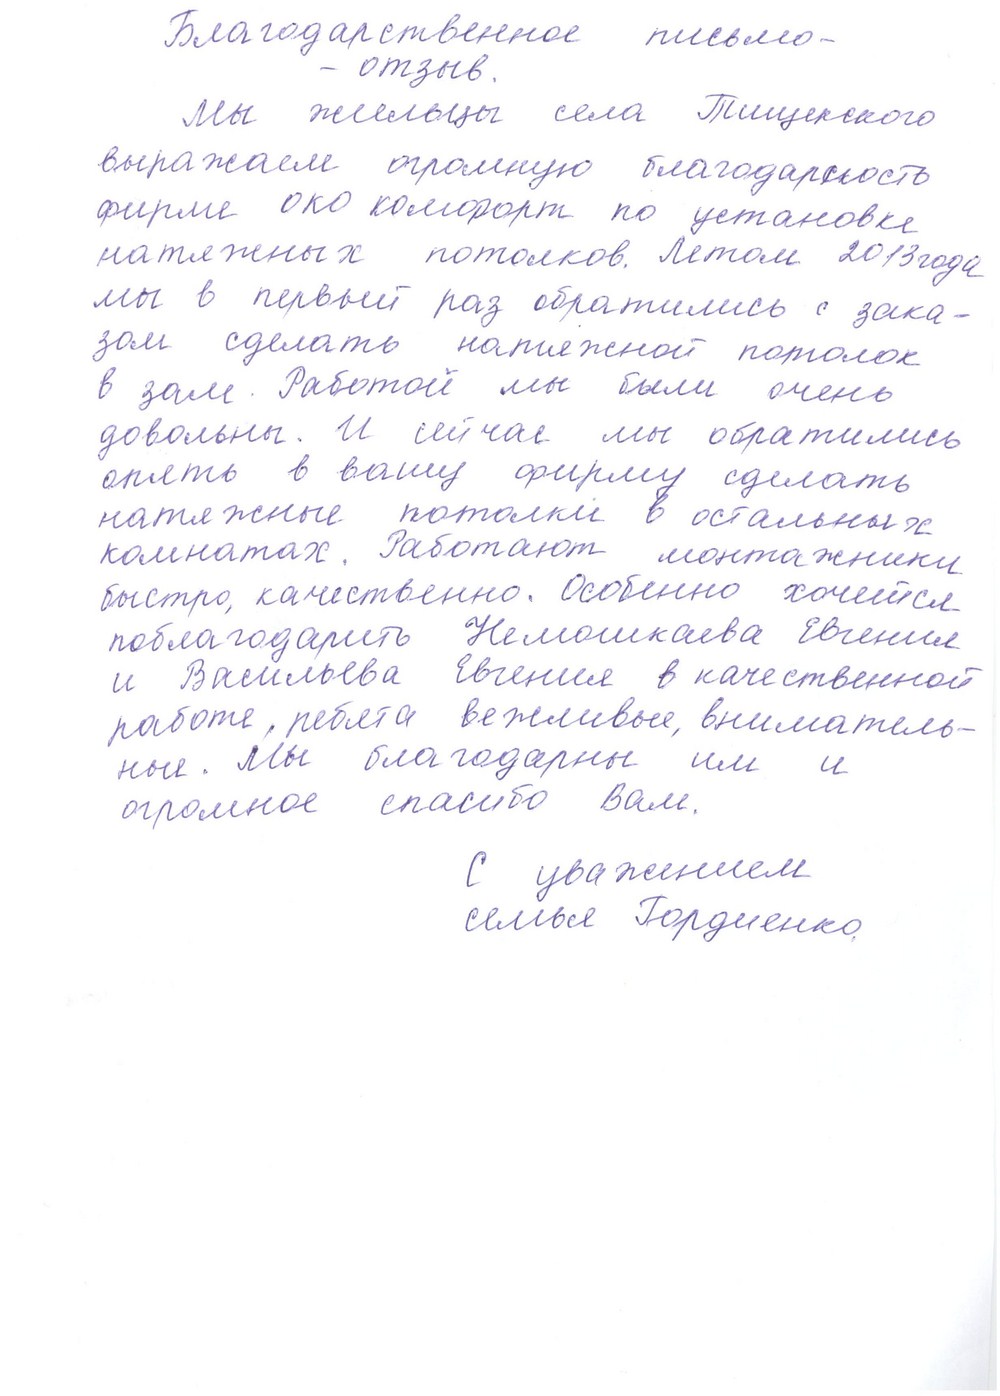 Благодарственное письмо-
- отзыв.
Мы жильцы села Тищенского
выражаем огромную благодарность
фирме око комфорт по установке
натяжных потолков. Летом 2013 года
мы в первый раз обратились с зака-
зом сделать натяжной потолок
в зале. Работой мы были очень
довольны. И сейчас мы обратились
опять в вашу фирму сделать
натяжные потолки в остальных
комнатах. Работают монтажники
быстро, качественно. Особенно хочется
поблагодарить Немошкаева Евгения
и Васильева Евгения в качественной
работе, ребята вежливые, вниматель-
ные. Мы благодарны им и
огромное спасибо Вам.
С уважением
семья Гордиенко.